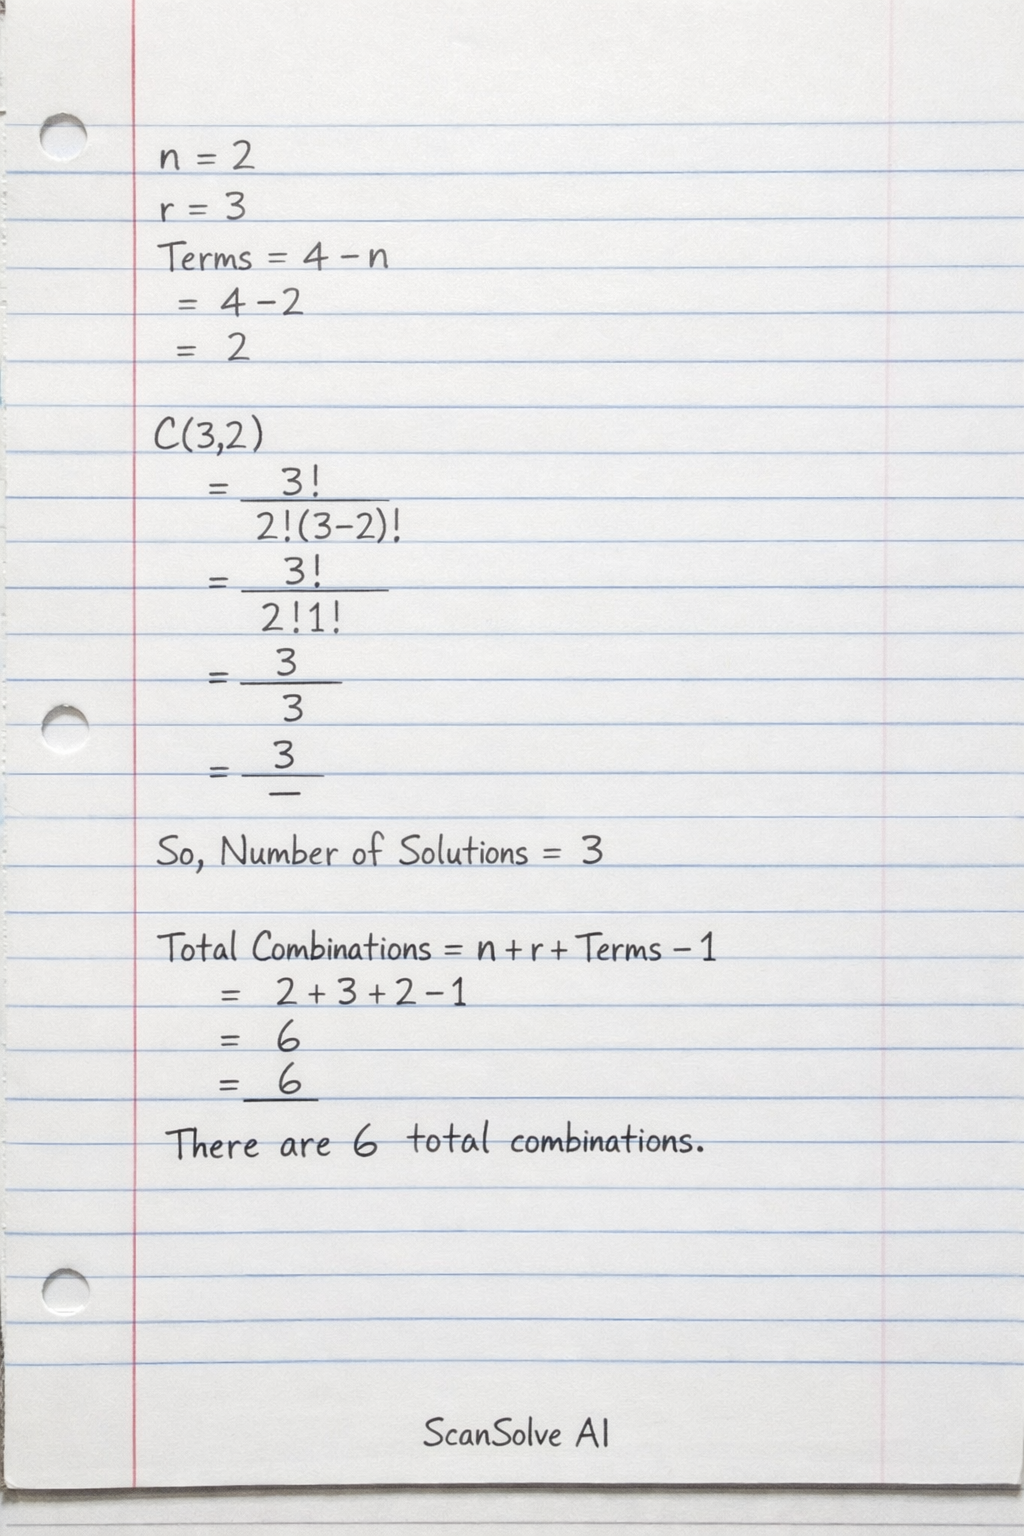 n = 2
r = 3
Terms = 4 - n
= 4 - 2
= 2
C(3,2)
= 3!
2!(3-2)!
= 3!
2!1!
= 3
3
= 3
—
So, Number of Solutions = 3
Total Combinations = n + r + Terms - 1
= 2 + 3 + 2 - 1
= 6
= 6
There are 6 total combinations.
ScanSolve AI